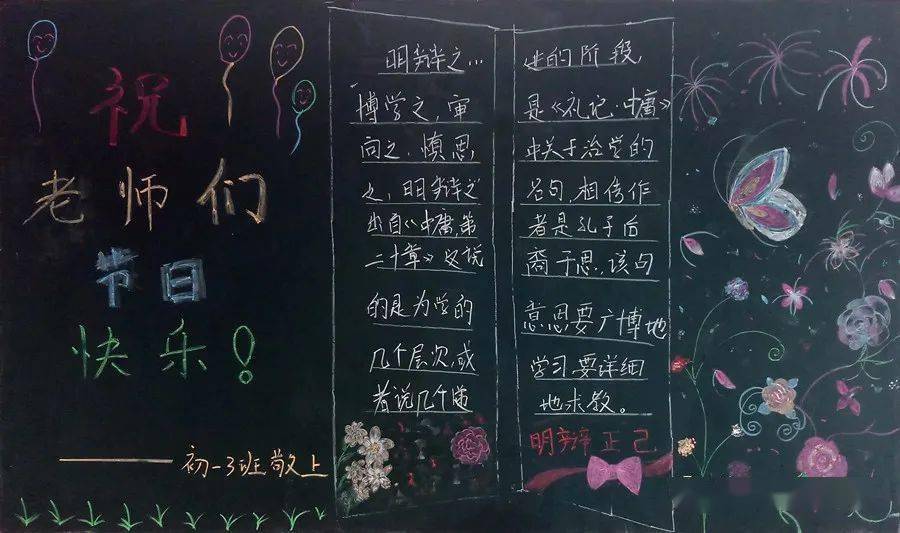 祝
老师们
节日
快乐！
——初一3班敬上
明辨之…
博学之,审
问之,慎思
之,明辨之
出自《中庸,第
二十章》又说
的是为学的
几个层次,或
者说几个递
进的阶段
是《礼记·中庸》
中关于治学的
名句,相传作
者是孔子后
裔子思,该句
意思要广博地
学习要详细
地求教。
明辨正己